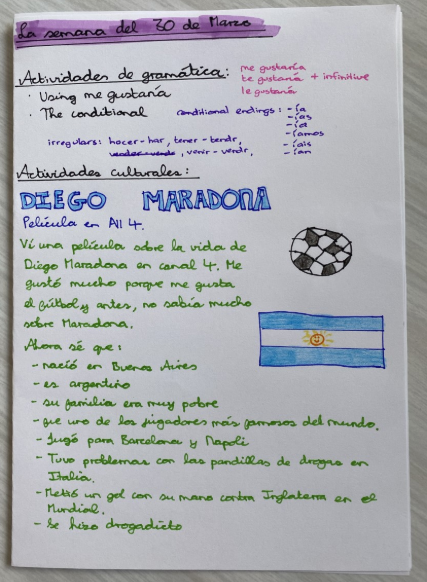 La semana del 30 de Marzo
Actividades de gramática:
me gustaría
te gustaría + infinitive
le gustaría
· Using me gustaría
· The conditional
conditional endings: -ía
-ías
-ía
-íamos
-íais
-ían
irregulars: hacer-har, tener-tendr,
venir-vendr,
Actividades culturales:
DIEGO MARADONA
Película en All 4.
Ví una película sobre la vida de
Diego Maradona en canal 4. Me
gustó mucho porque me gusta
el fútbol y antes, no sabía mucho
sobre Maradona.
Ahora sé que:
- nació en Buenos Aires
- es argentino
- su familia era muy pobre
- fue uno de los jugadores más famosos del mundo.
- Jugó para Barcelona y Napoli
- Tuvo problemas con las pandillas de drogas en
Italia.
- Metió un gol con su mano contra Inglaterra en el
Mundial.
- Se hizo drogadicto